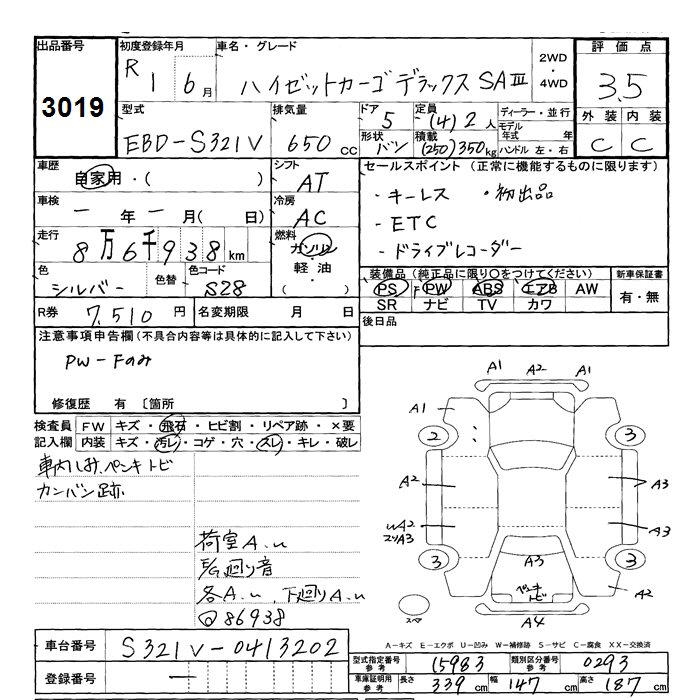 出品番号
3019
初度登録年月
R 1 6月
車名・グレード
ハイゼットカーゴ デラックス SAⅢ
2WD
・
4WD
評価点
3.5
型式
EBD-S321V
排気量
650 cc
ドア
5
形状
バン
定員
(4) 2 人
積載
(250) 350 kg
ディーラー・並行
モデル年式 年
ハンドル 左・右
外装 内装
C C
車歴
自家用・( )
シフト
AT
車検
ー 年 ー 月( 日)
冷房
AC
走行
8万6千938 km
燃料
ガソリン
・
軽油
・
( )
色
シルバー
色替
色コード
S28
R券
7,510 円
名変期限 月 日
セールスポイント (正常に機能するものに限ります)
・キーレス ・初出品
・ETC
・ドライブレコーダー
装備品 (純正品に限り○をつけてください)
PS F PW ABS エアB AW
SR ナビ TV カワ
新車保証書
有・無
後日品
注意事項申告欄 (不具合内容等は具体的に記入して下さい)
PW-Fのみ
修復歴 有 〔箇所 〕
検査員記入欄
FW キズ・飛石・ヒビ割・リペア跡・×要
内装 キズ・汚レ・コゲ・穴・スレ・キレ・破レ
車内しみ、ペンキトビ
カンバン跡
荷室A.U
E/G廻り音
各A.U 下廻りA.U
◎86938
A1 A2 A1
A1
2 3
A2 A3
UA2 A3
A3
3 3
A3
ペンキトビ
A2
スペア
A4
A-キズ E-エクボ U-凹み W-補修跡 S-サビ C-腐食 XX-交換済
車台番号
S321V-0413202
登録番号
ー
型式指定番号 参考
15983
類別区分番号 参考
0293
車庫証明用 参考
長さ 339 cm 幅 147 cm 高さ 187 cm